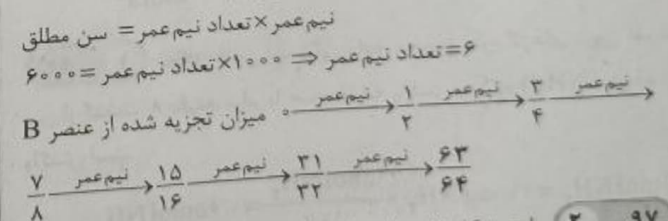 نیم‌عمر×تعداد نیم‌عمر= سن مطلق
۶=تعداد نیم‌عمر ⇒ ۱۰۰۰×تعداد نیم‌عمر =۶۰۰۰
میزان تجزیه شده از عنصر B ۰ نیم‌عمر→ ۱/۲ نیم‌عمر→ ۳/۴ نیم‌عمر→
۷/۸ نیم‌عمر→ ۱۵/۱۶ نیم‌عمر→ ۳۱/۳۲ نیم‌عمر→ ۶۳/۶۴
۲ ۹۷